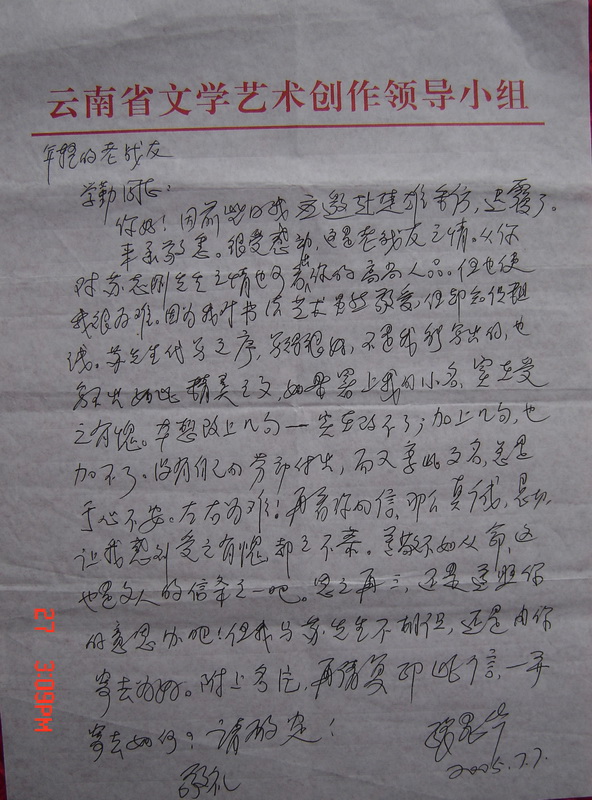 云南省文学艺术创作领导小组
年轻的老战友
学勤同志：
你好！因前些日我应邀赴楚雄采访，迟覆了。
来函敬悉。很受感动，这是老战友之情。从你
对苏志刚先生之情也可看你的高尚人品。但也使
我很为难。因为我对书法艺术虽然敬爱，但却知识粗
浅。苏先生代写之序，写得很好，不是我能写出的，也
写不出如此精美之文，如果署上我的小名，实在受
之有愧。本想改上几句——实在改不了；加上几句，也
加不了。没有自己的劳动付出，而又享此文名，总是
于心不安。左右为难！再看你的信，那么真诚，恳切，
让我感到受之有愧却之不恭。恭敬不如从命，这
也是文人的信条之一吧。思之再三，还是遵照你
的意思办吧！但我与苏先生不相识，还是由你
寄去为好。附上名片，再请复印此信，一并
寄去如何？请酌定！
敬礼
2005.7.7.
27 3:09PM